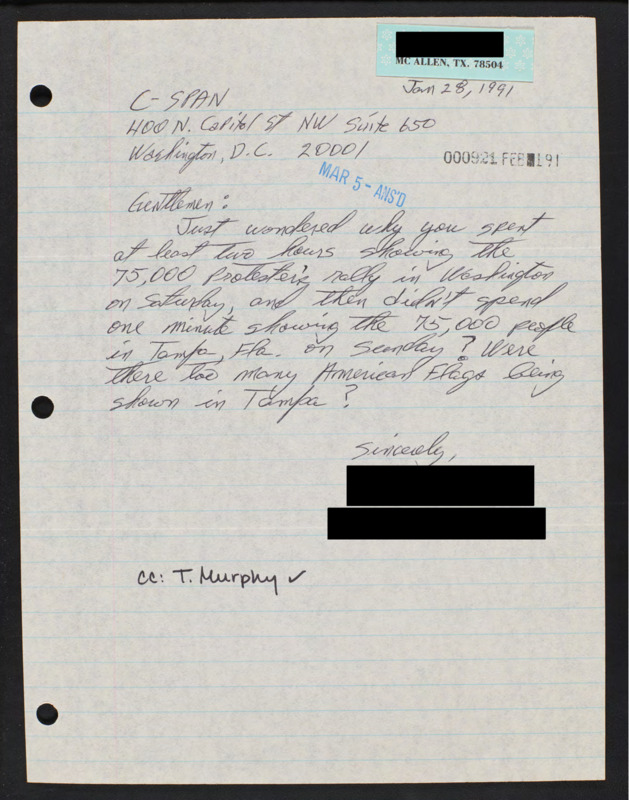 MC ALLEN, TX. 78504
Jan 28, 1991
C-SPAN
400 N. Capitol St NW Suite 650
Washington, D.C. 20001
000921 FEB 191
MAR 5 - ANS'D
Gentlemen:
Just wondered why you spent
at least two hours showing the
75,000 protester's rally in Washington
on Saturday, and then didn't spend
one minute showing the 75,000 people
in Tampa, Fla. on Sunday? Were
there too many American Flags being
shown in Tampa?
Sincerely,
cc: T. Murphy ✓